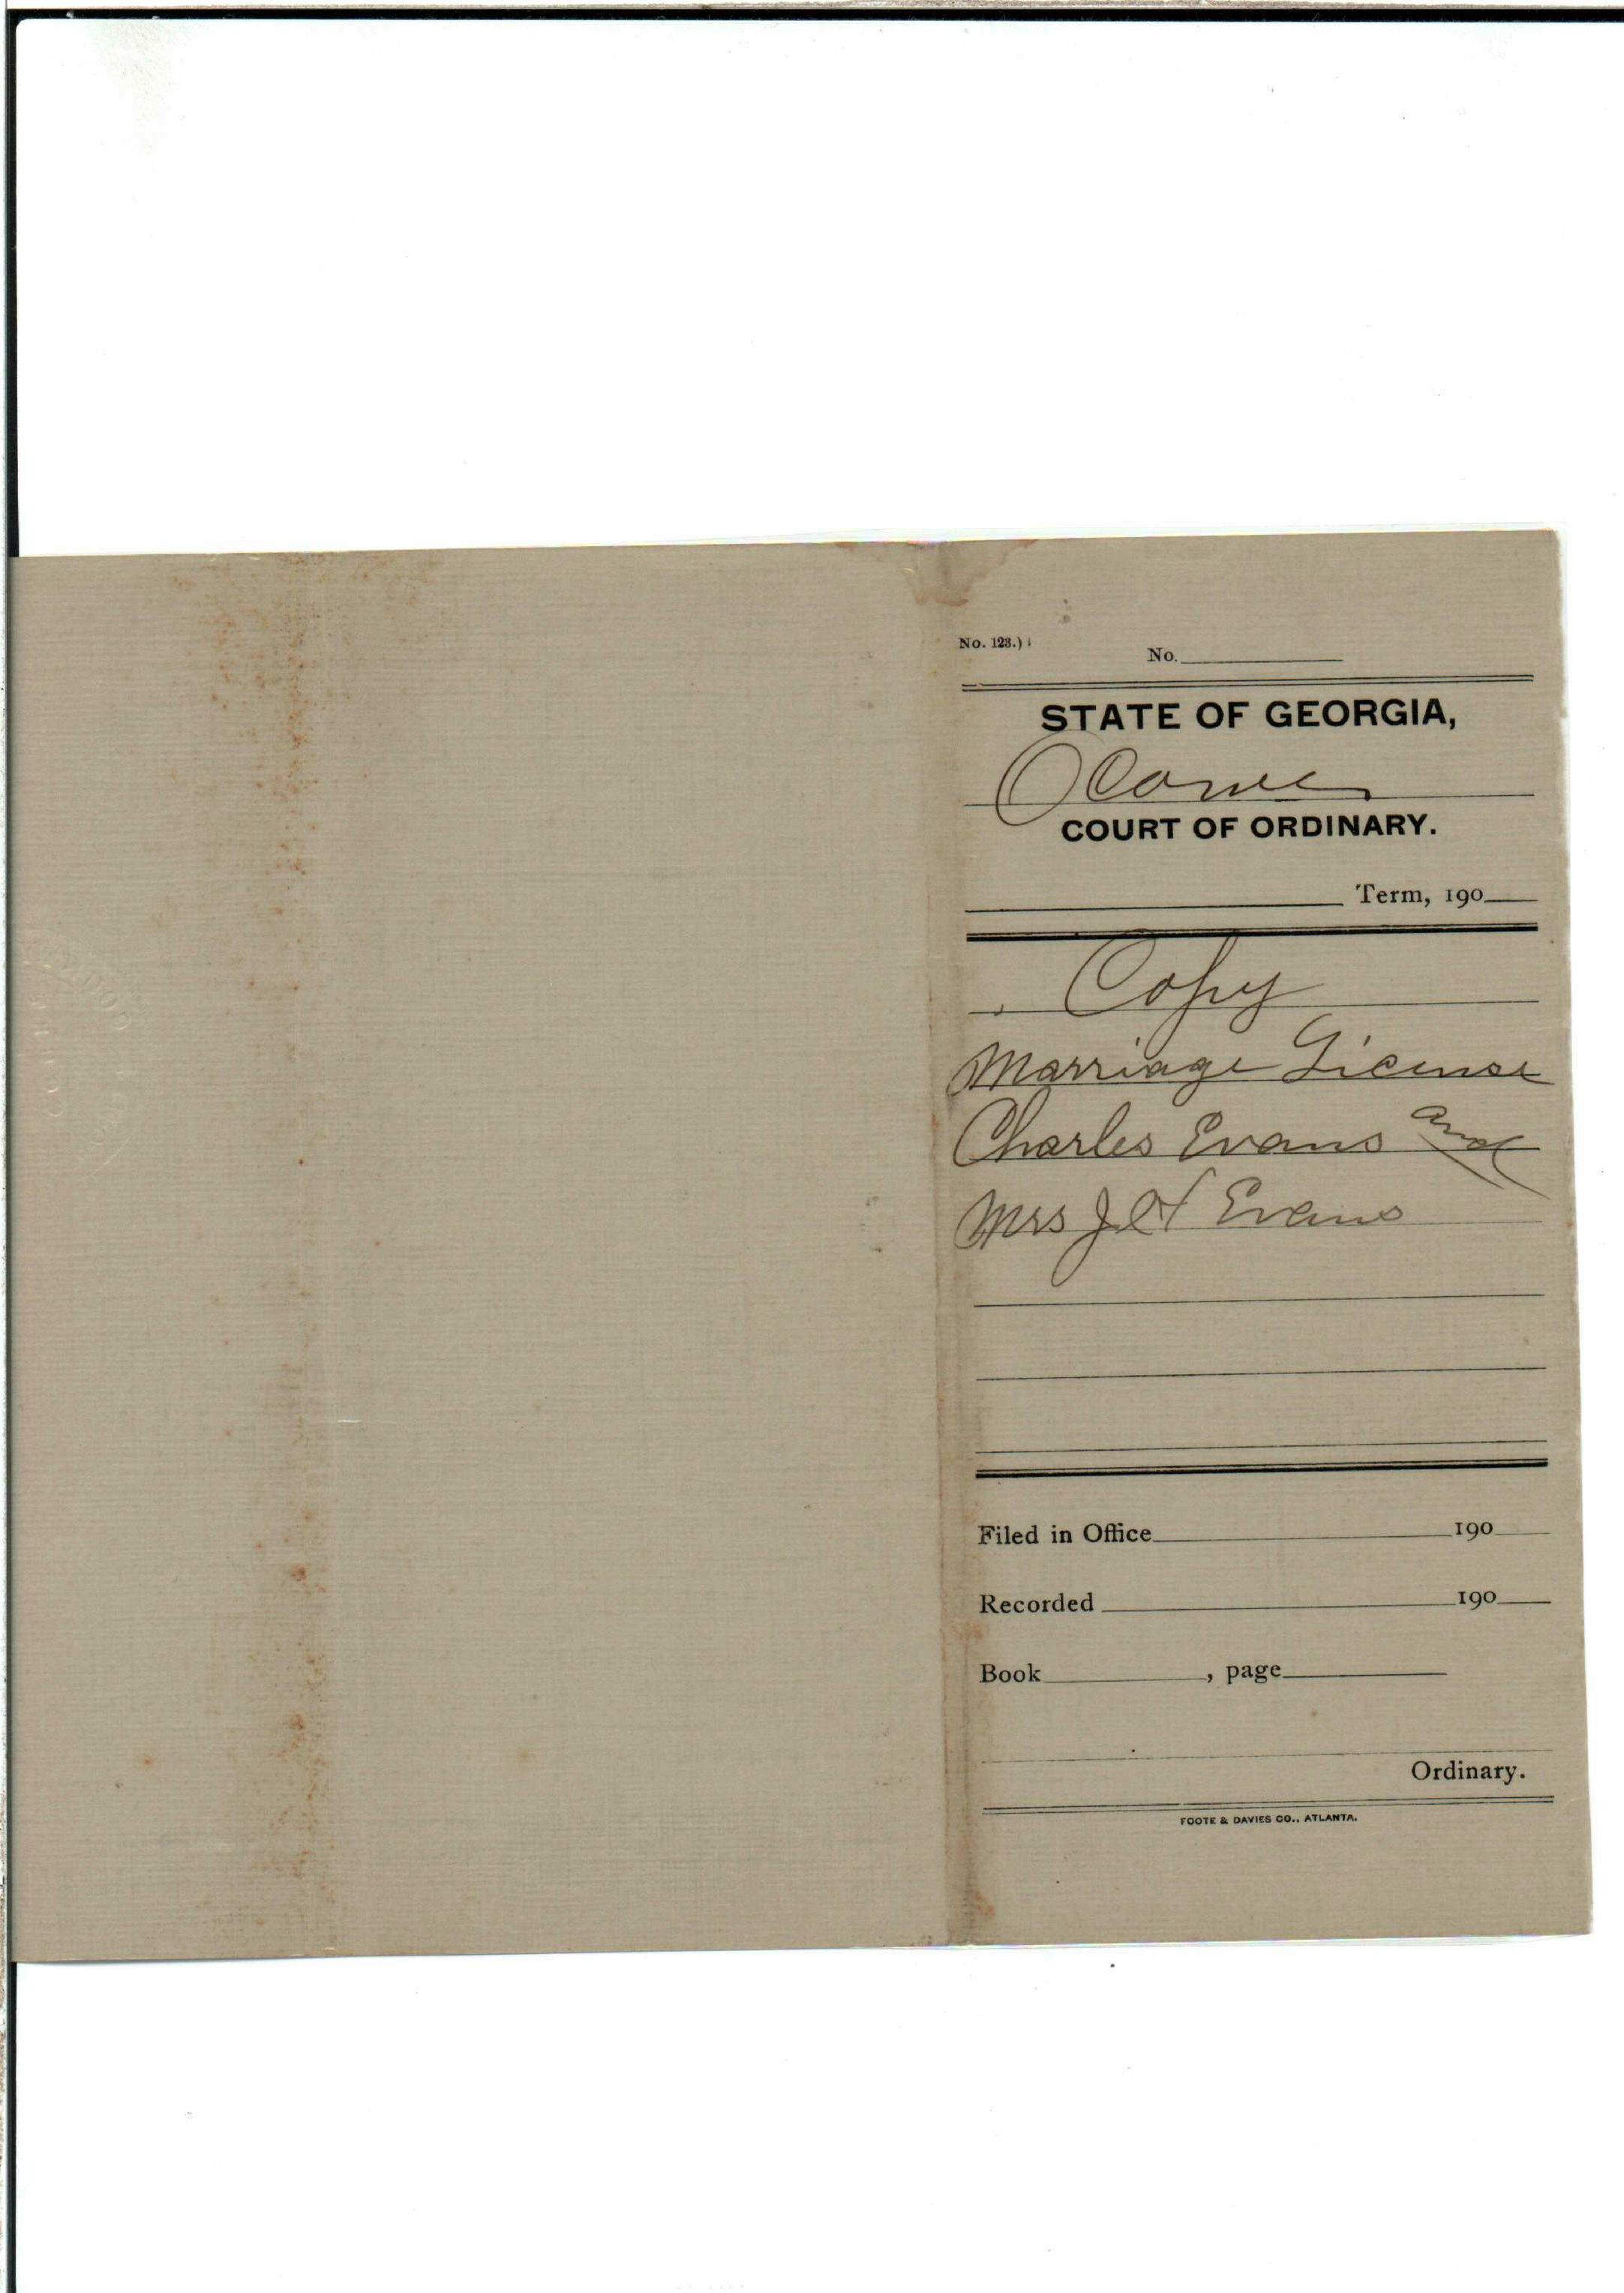 No. 123.)
No.
STATE OF GEORGIA,
Oconee
COURT OF ORDINARY.
Term, 190
Copy
Marriage License
Charles Evans and
Mrs J H Evans
Filed in Office 190
Recorded 190
Book , page
Ordinary.
FOOTE & DAVIES CO., ATLANTA.